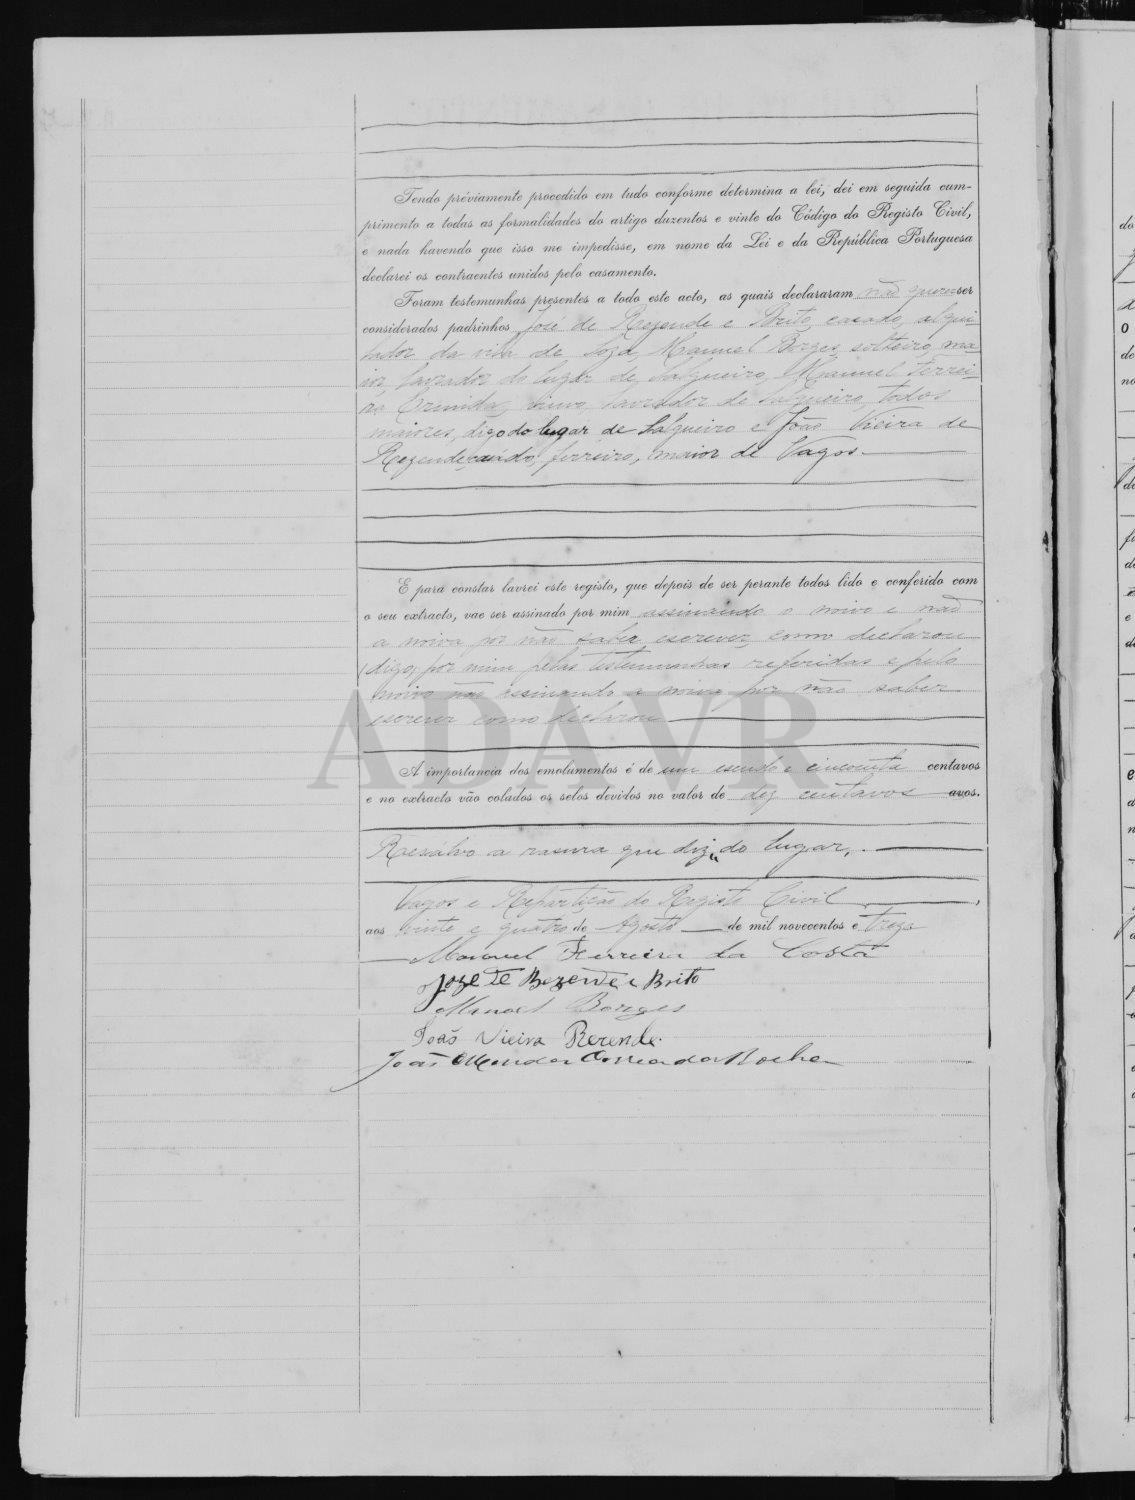 Tendo préviamente procedido em tudo conforme determina a lei, dei em seguida cum-
primento a todas as formalidades do artigo duzentos e vinte do Código do Registo Civil,
e nada havendo que isso me impedisse, em nome da Lei e da República Portuguesa
declarei os contraentes unidos pelo casamento.
Foram testemunhas presentes a todo este acto, as quais declararam não querer ser
considerados padrinhos José de Rezende e Brito, casado, alqui-
lador da vila de Soza, Manuel Borges, solteiro, ma-
ior, lavrador do lugar de Salgueiro, Manuel Ferrei-
ra viuvo, lavrador de Salgueiro, todos
maiores, digo do lugar de Salgueiro e João Vieira de
Rezende, casado, ferreiro, maior de Vagos.
E para constar lavrei este registo, que depois de ser perante todos lido e conferido com
o seu extracto, vae ser assinado por mim assinando o noivo e não
a noiva por não saber escrever, como declarou
digo, por mim pelas testemunhas referidas e pelo
noivo não assinando a noiva por não saber
escrever como declarou
A importancia dos emolumentos é de um escudo e cincoenta centavos
e no extracto vão colados os selos devidos no valor de dez centavos avos.
Resalvo a rasura que diz "do lugar".
Vagos e Repartição do Registo Civil
aos vinte e quatro de Agosto de mil novecentos e treze
Manuel Ferreira da Costa
Joze de Rezende e Brito
Manoel Borges
João Vieira Rezende.
João Mendes Correia da Rocha
ADAVR